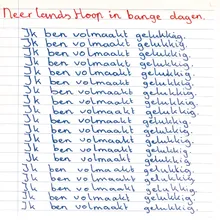 Neerlands Hoop in bange dagen.
Ik ben volmaakt gelukkig.
Ik ben volmaakt gelukkig.
Ik ben volmaakt gelukkig.
Ik ben volmaakt gelukkig.
Ik ben volmaakt gelukkig.
Ik ben volmaakt gelukkig.
Ik ben volmaakt gelukkig.
Ik ben volmaakt gelukkig.
Ik ben volmaakt gelukkig.
Ik ben volmaakt gelukkig.
Ik ben volmaakt gelukkig.
Ik ben volmaakt gelukkig.
Ik ben volmaakt gelukkig.
Ik ben volmaakt gelukkig.
Ik ben volmaakt gelukkig.
Ik ben volmaakt gelukkig.